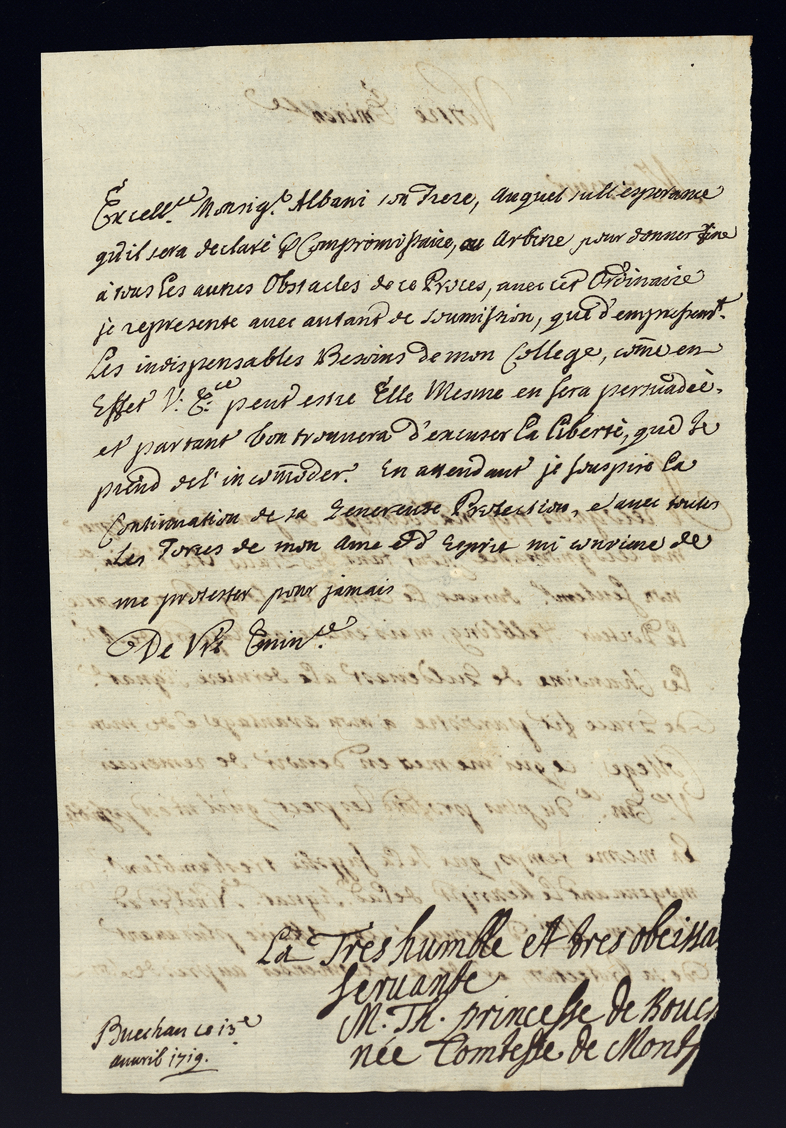 Excell.ce Monsig.r Albani son Frere, Auquel sub l'esperance
qu'il sera declaré Compromissaire, ou Arbitre pour donner fine
à tous Les autres Obstacles de ce Proces, avec cet Ordinaire
je represente avec autant de soumission, que d'empressem.t
Les indispensables Besoins de mon College, com̄e en
Effet V. E.ce peut estre Elle Mesme en sera persuadeè,
et partant bon trouvera d'excuser La Libertè, que Je
prend de l'incom̄oder. En attendant je souspire La
Continuation de sa Genereuse Protection, et avec toutes
Les Forces de mon Ame et d'Esprit mi convient de
me protester pour jamais
De V.re Emin.ce
La Tres humble et tres obeissa
servante
M. Th. princesse de Bouc
née Comtesse de Montf
Buechau ce 13.e
auvril 1719.